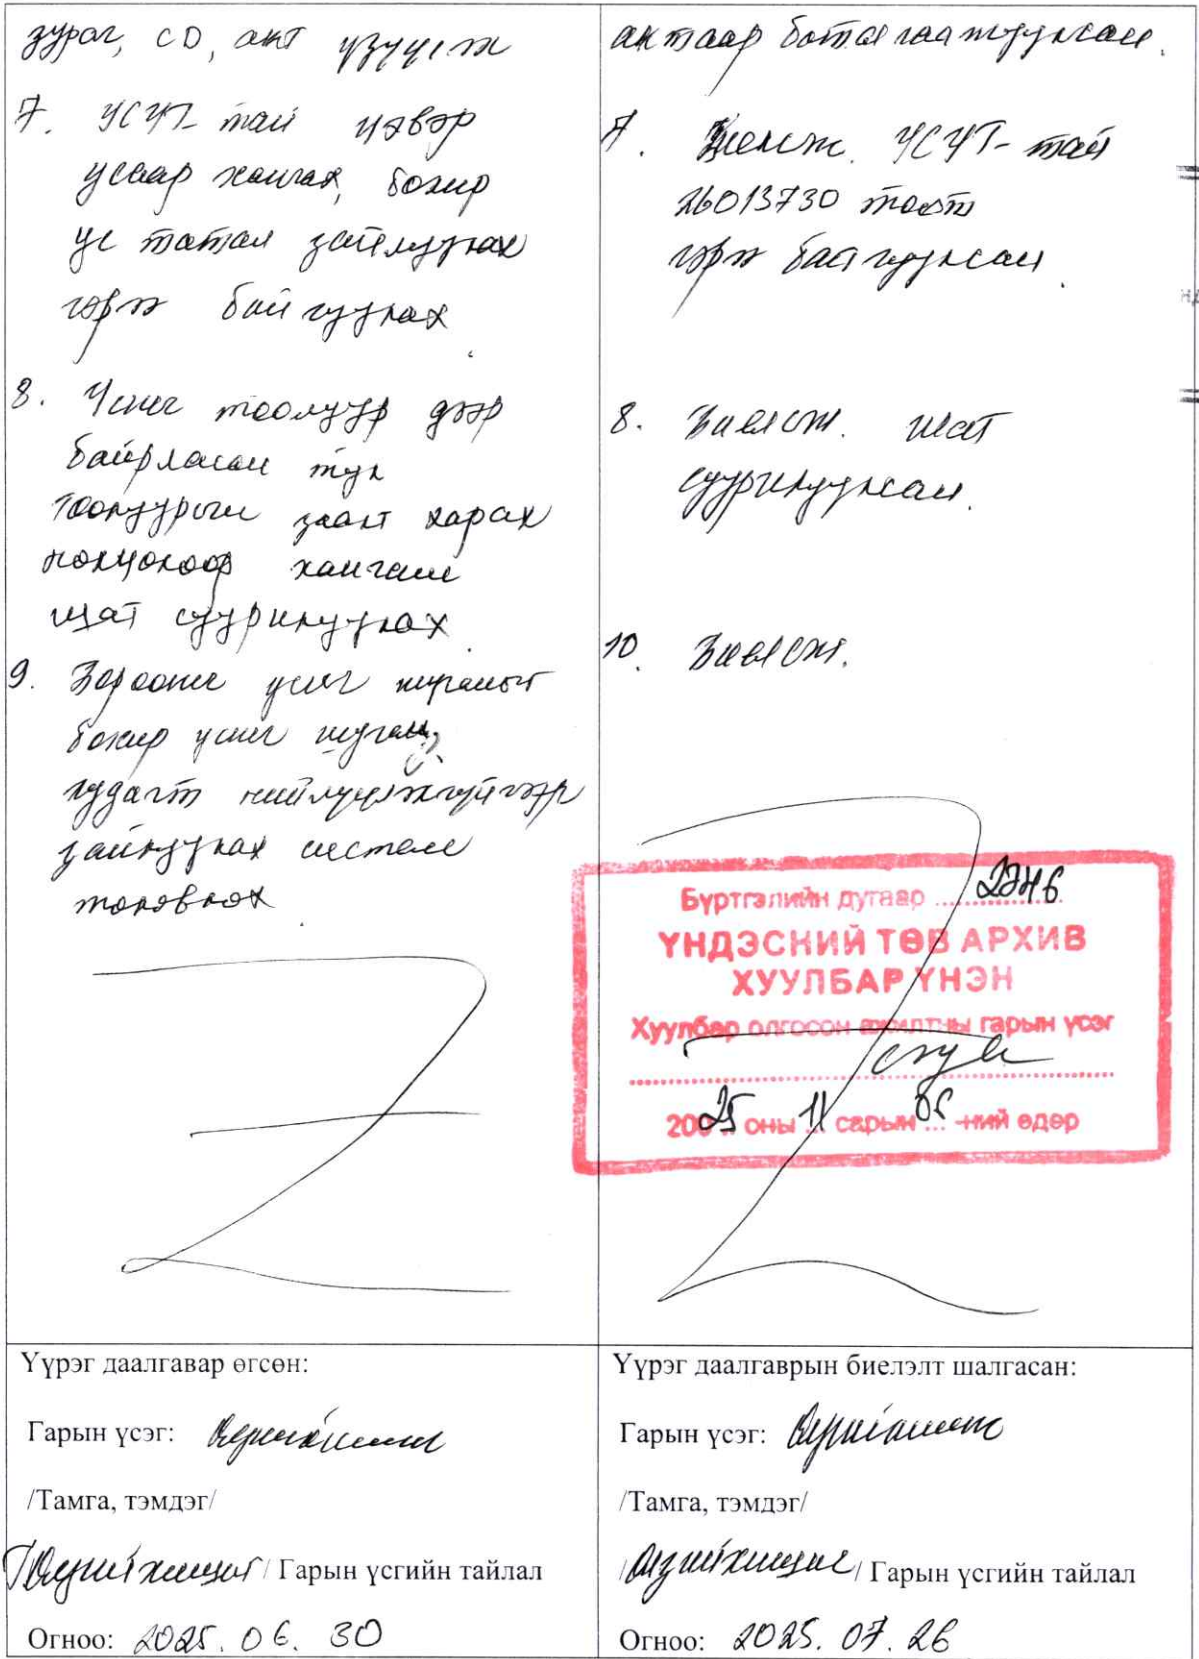 зураг, CD, акт үзүүлэх
7. УСУГ-тай цэвэр
усаар хангах, бохир
ус татан зайлуулах
гэрээ байгуулах.
8. Усны тоолуур дээр
байрласан тул
тоолуурын заалт харах
нөхцөлөөр хангаж
шат суурилуулах.
9. Борооны усыг
бохир усны шугам,
худагт нийлүүлэхгүйгээр
зайлуулах систем
төлөвлөх.
актаар баталгаажуулсан.
7. Биелсэн. УСУГ-тай
26013730 тоот
гэрээ байгуулсан.
8. Биелсэн. Шат
суурилуулсан.
10. Биелсэн.
Бүртгэлийн дугаар ..........
ҮНДЭСНИЙ ТӨВ АРХИВ
ХУУЛБАР ҮНЭН
Хуулбар олгосон ажилтны гарын үсэг
20025 оны 11 сарын 05 -ний өдөр
Үүрэг даалгавар өгсөн:
Гарын үсэг:
/Тамга, тэмдэг/
/ Гарын үсгийн тайлал
Огноо: 2025. 06. 30
Үүрэг даалгаврын биелэлт шалгасан:
Гарын үсэг:
/Тамга, тэмдэг/
/ Гарын үсгийн тайлал
Огноо: 2025. 07. 26